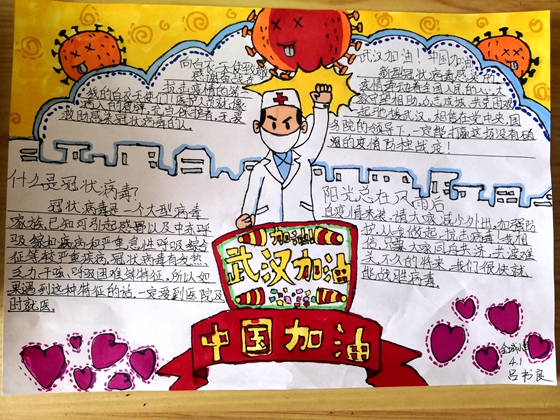 向白衣天使致敬
感谢有您在
我的白衣天使们!医院人员就像
病人的
救助感染冠状病毒的人。
武汉加油!中国加油
新型冠状病毒感染的
疫情牵动着全国人民的心,大
家守望相助,众志成城,共克
相信在党中央,国
务院的领导下,一定能打赢这场没有硝
烟的疫情防控战疫!
什么是冠状病毒?
冠状病毒是一个大型病毒
家族,已知可引起感冒以及中东呼
吸综合疾病和严重急性呼吸综合
征等较严重疾病,冠状病毒有发热
乏力干咳,呼吸困难等特征,所以如
果遇到这种特征的话,一定要到医院及
时就医。
阳光总在风雨后
疫情未来,请大家减少外出,加强防
护,从手做起,
信,只要大家同
关,不久的将来,我们很快就
能战胜病毒。
加油!
武汉加油
中国加油
4.1
吕书良